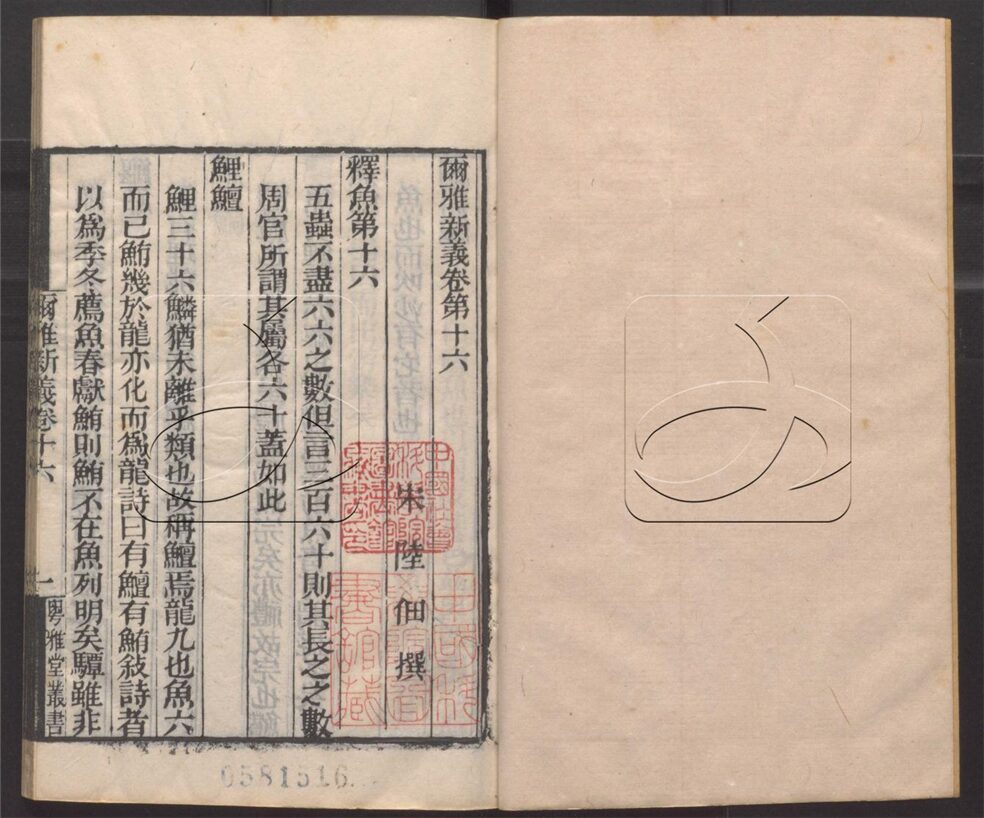 爾雅新義卷第十六
宋 陸 佃 撰
釋魚第十六
五蟲不盡六六之數但言三百六十則其長之之數
周官所謂其屬各六十蓋如此
鯉鱣
鯉三十六鱗猶未離乎類也故稱鱣焉龍九也魚六
而已鮪幾於龍亦化而為龍詩曰有鱣有鮪敍詩者
以為季冬薦魚春獻鮪則鮪不在魚列明矣驔雖非
爾雅新義卷十六
一
粵雅堂叢書
0581516